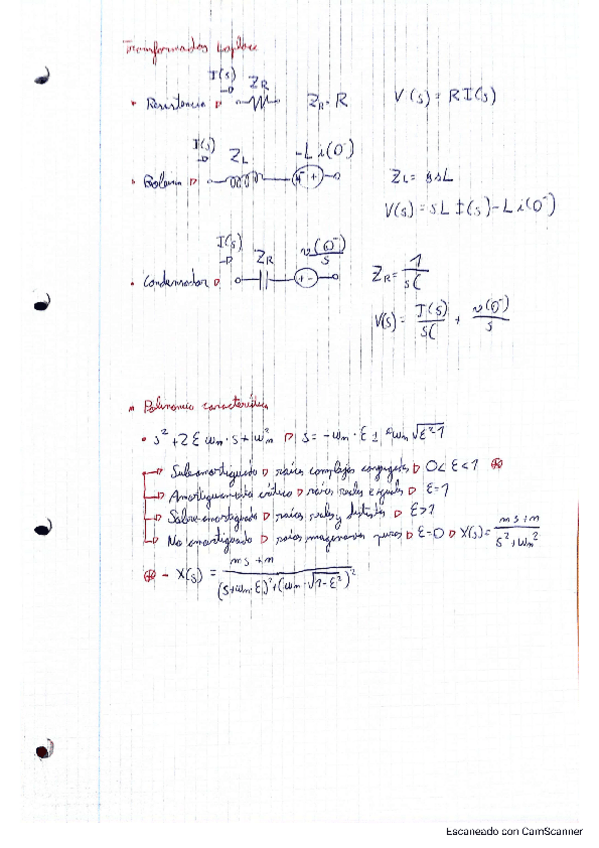 Transformadas Laplace
I(s)
Z_R
• Resistencia ▷ Z_R = R V(s) = R I(s)
I(s) Z_L -L i(0⁻)
• Bobina ▷ - + Z_L = sL
V(s) = sL I(s) - L i(0⁻)
I(s) Z_R v(0⁻)/s
• Condensador ▷ + - Z_R = 1/sC
V(s) = I(s)/sC + v(0⁻)/s
Polinomio característico
• s² + 2ξωn·s + ωn² ▷ s = -ωn·ξ ± ωn√ξ²-1
Subamortiguado ▷ raíces complejas conjugadas ▷ 0 < ξ < 1 ⊛
Amortiguamiento crítico ▷ raíces reales e iguales ▷ ξ = 1
Sobreamortiguado ▷ raíces reales y distintas ▷ ξ > 1
No amortiguado ▷ raíces imaginarias puras ▷ ξ = 0 ▷ X(s) = ms+n / s²+ωn²
⊛ - X(s) = ms+n / (s+ωn·ξ)²+(ωn·√1-ξ²)²
Escaneado con CamScanner